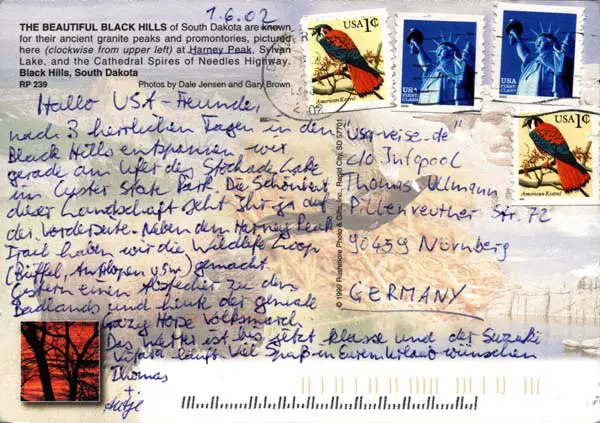 1.6.02
THE BEAUTIFUL BLACK HILLS of South Dakota are known
for their ancient granite peaks and promontories, pictured
here (clockwise from upper left) at Harney Peak, Sylvan
Lake, and the Cathedral Spires of Needles Highway.
Black Hills, South Dakota
RP 239
Photos by Dale Jensen and Gary Brown
Hallo USA-Freunde,
nach 3 herrlichen Tagen in den
Black Hills entspannen wir
gerade am Ufer des Stockade Lake
im Custer State Park. Die Schönheit
dieser Landschaft seht Ihr ja auf
der Vorderseite. Neben dem Harney Peak
Trail haben wir die Wildlife Loop
(Büffel, Antilopen usw) gemacht
Gestern einen Abstecher zu den
Badlands und heute der geniale
Crazy Horse Volksmarch
Das Wetter ist bis jetzt klasse und der Suzuki
läuft. Viel Spaß in Eurem Urlaub wünschen
Thomas
+
Antje
© 1999 Rushmore Photo & Gifts, Inc., Rapid City, SD 57701
USA 1¢
American Kestrel
USA
FIRST CLASS
USA
FIRST CLASS
USA 1¢
American Kestrel
"usa-reise.de"
c/o Infopool
Thomas Ullmann
Pillenreuther Str. 72
90459 Nürnberg
GERMANY